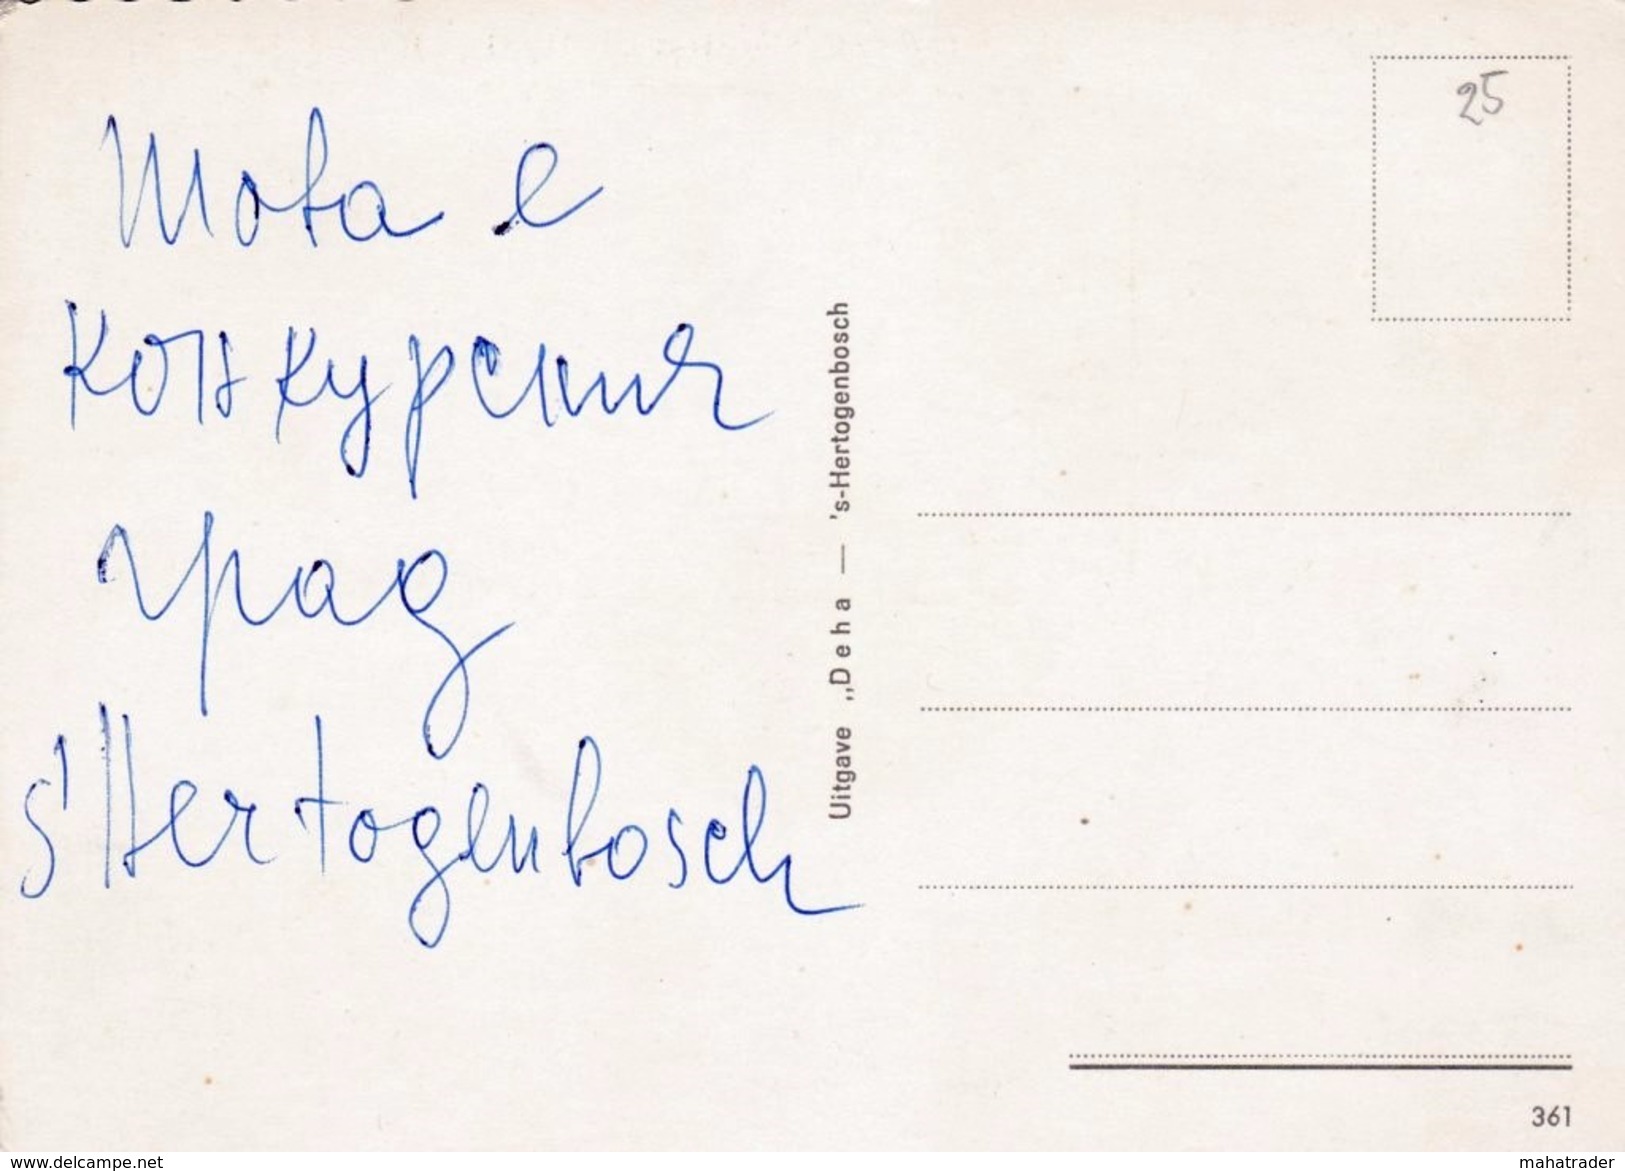 Това е
конкурсния
град
s'Hertogenbosch
25
Uitgave „Deha — 's-Hertogenbosch
361
www.delcampe.net
mahatrader